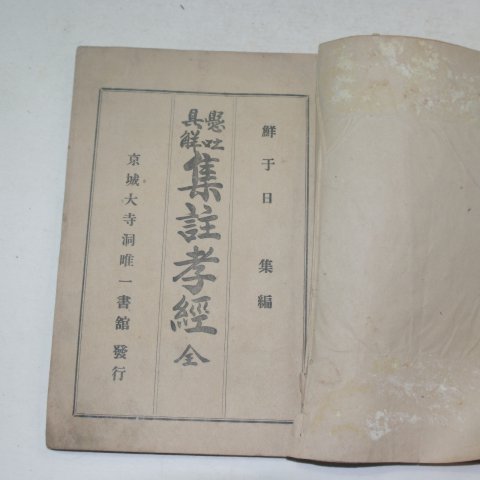 鮮于日 集編
懸吐
具解
集註孝經 全
京城大寺洞唯一書館 發行